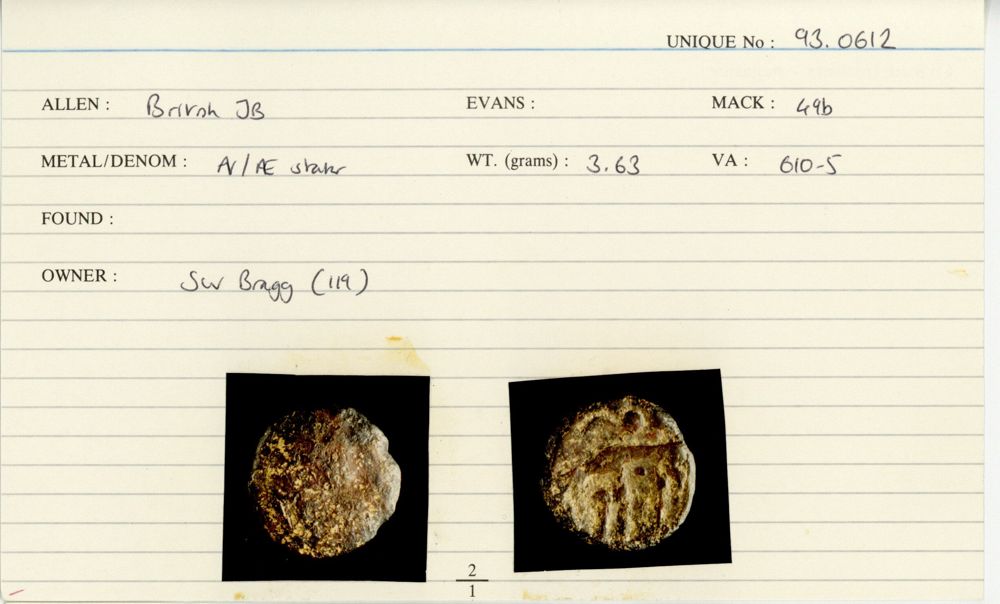 UNIQUE No : 93.0612
ALLEN : British JB EVANS : MACK : 49b
METAL/DENOM : AV/Æ stater WT. (grams) : 3.63 VA : 610-5
FOUND :
OWNER : SW Bragg (119)
2
1